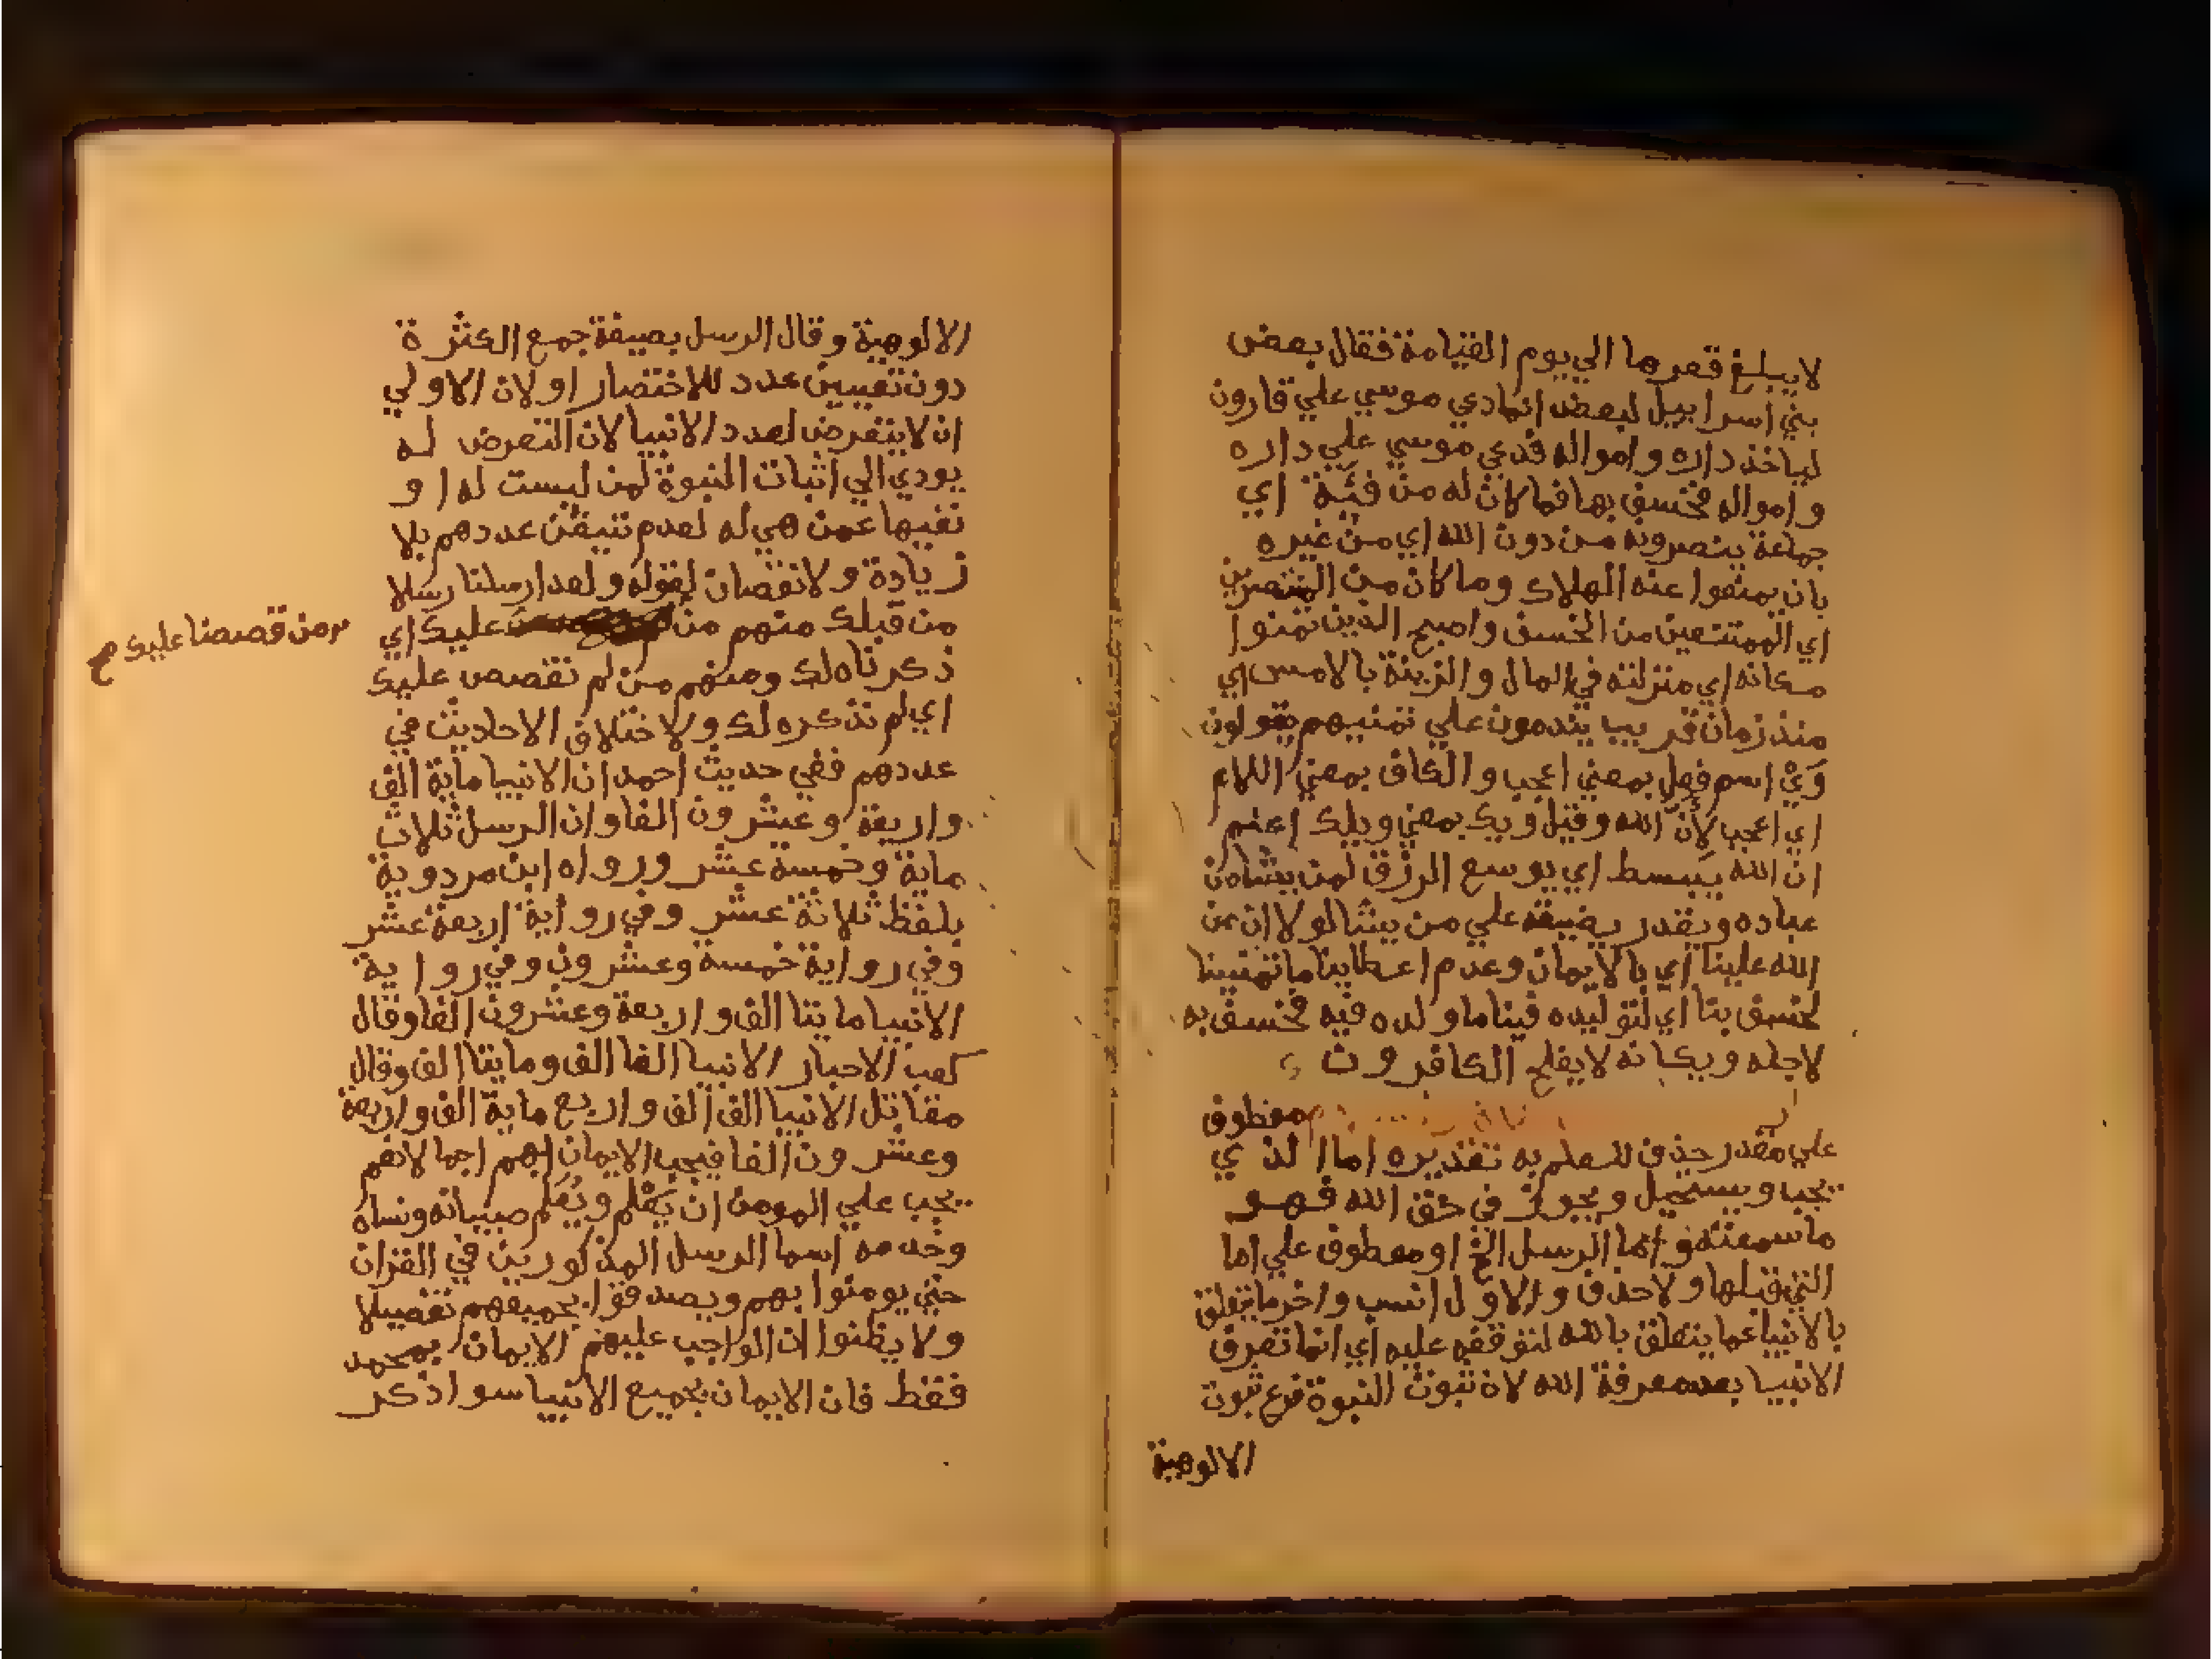 لايبلغ قعرها الي يوم القيامة فقال بعض
بني اسراييل لبعض انما دعي موسي علي قارون
لياخذ داره وامواله فدعي موسي علي داره
وامواله فخسف بها فما كان له من فئة اي
جماعة ينصرونه من دون الله اي من غيره
بان يمنعوا عنه الهلاك وما كان من المنتصرين
اي الممتنعين من الخسف واصبح الذين تمنوا
مكانه اي منزلته في المال والزينة بالامس اي
منذ زمان قريب يندمون علي تمنيهم يقولون
وَيْ اسم فعل بمعني اعجب والكاف بمعني اللام
اي اعجب لأنّ الله وقيل ويك بمعني ويلك اعلم
ان الله يبسط اي يوسع الرزق لمن يشا من
عباده ويقدر يضيقه علي من يشا لولا ان من
الله علينا اي بالايمان وعدم اعطاينا ما تمنينا
لخسف بنا اي لتوليده فينا ما ولده فيه فخسف به
لاجله ويكانه لايفلح الكافرون
معطوف
علي مقدر حذف للعلم به تقديره اما الذي
يجب ويستحيل ويجوز في حق الله فهو
ما سمعته واما الرسل الخ او معطوف علي اما
التي قبلها ولاحذف والاول انسب واخر ما يتعلق
بالانبيا عما يتعلق بالله لتوقفه عليه اي انما تعرف
الانبيا بعد معرفة الله لان ثبوت النبوة فرع ثبوت
الالوهية
الالوهية وقال الرسل بصيغة جمع الكثرة
دون تعيين عدد للاختصار اولان الاولي
ان لايتعرض لعدد الانبيا لان التعرض له
يودي الي اثبات النبوة لمن ليست له او
نفيها عمن هي له لعدم تيقن عددهم بلا
زيادة ولانقصان لقوله ولقد ارسلنا رسلا
من قبلك منهم من عليك اي
من قصصنا عليك صح
ذكرناه لك ومنهم من لم نقصص عليك
اي لم نذكره لك ولاختلاف الاحاديث في
عددهم ففي حديث احمد ان الانبيا ماية الف
واربعة وعشرون الفا وان الرسل ثلاث
ماية وخمسة عشر ورواه ابن مردوية
بلفظ ثلاثة عشر وفي رواية اربعة عشر
وفي رواية خمسة وعشرون وفي رواية
الانبيا مايتا الف واربعة وعشرون الفا وقال
كعب الاحبار الانبيا الفا الف ومايتا الف وقال
مقاتل الانبيا الف الف واربع ماية الف واربعة
وعشرون الفا فيجب الايمان بهم اجمالا نعم
يجب علي المومن ان يَعْلم ويُعَلم صبيانه ونساه
وخدمه اسما الرسل المذكورين في القران
حتي يومنوا بهم ويصدقوا بجميعهم تفصيلا
ولا يظنوا ان الواجب عليهم الايمان بمحمد
فقط فان الايمان بجميع الانبيا سوا ذكر